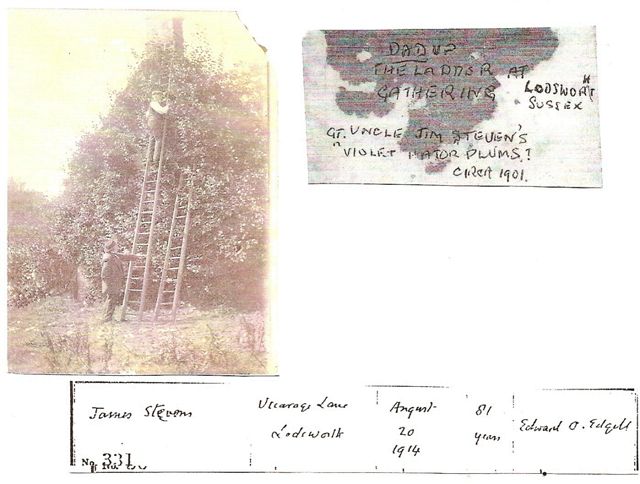 DAD UP
THE LADDER AT
GATHERING
LODSWORTH
SUSSEX
GT. UNCLE JIM STEVEN'S
VIOLET PLUMS!
CIRCA 1901.
James Stevens
Vicarage Lane
Lodsworth
August
20
1914
81
years
Edward O. Edgell
No. 331